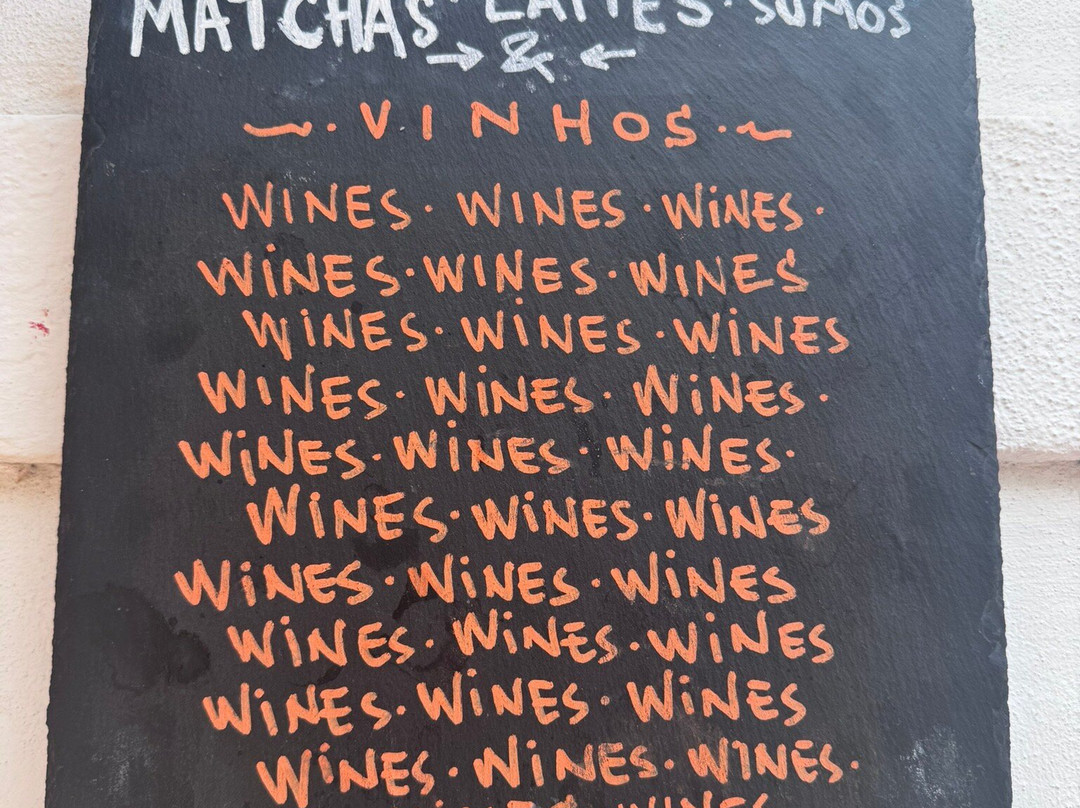 MATCHAS LATTES · SUMOS
→ & ←
~· VINHOS ·~
WINES · WINES · WiNES ·
WiNES · WINES · WINES
WiNES · WiNES · WiNES
WINES · WiNES · WiNES ·
WiNES · WiNES · WiNES ·
WiNES · WiNES · WiNES
WiNES · WiNES · WiNES
WiNES · WiNES · WiNES
WiNES · WiNES · WiNES
WiNES · NiNES · WINES ·
WINES